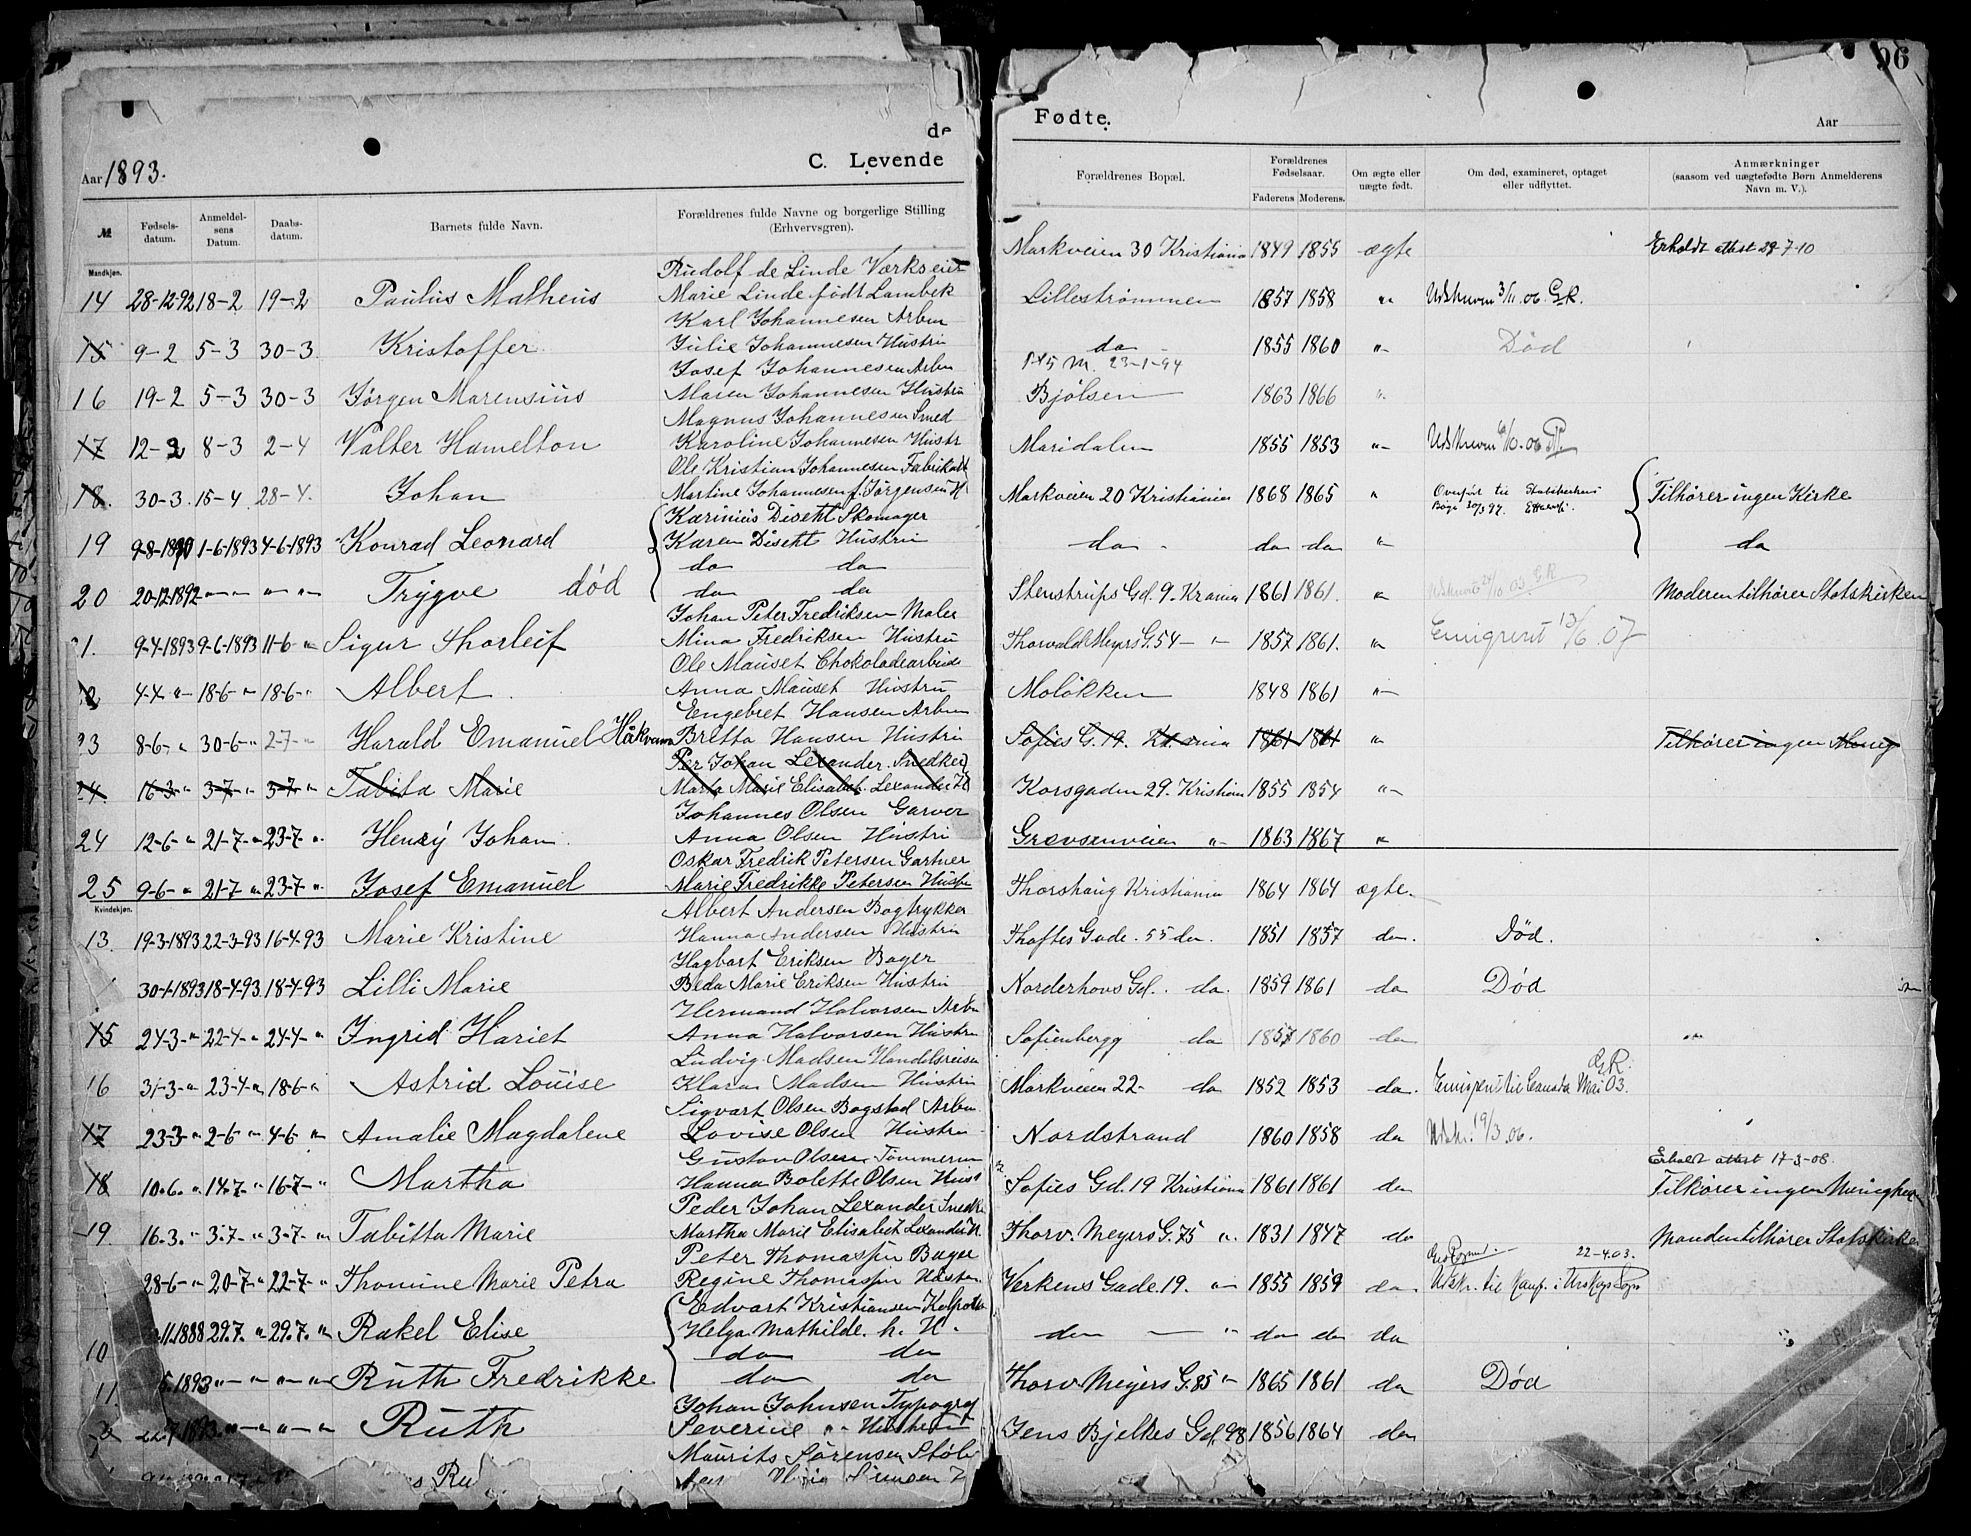 de
C. Levende
Aar 1893.
№ Fødsels-datum. Anmeldel-sens Datum. Daabs-datum. Barnets fulde Navn. Forældrenes fulde Navne og borgerlige Stilling (Erhvervsgren).
Mandkjøn.
Rudolf de Linde Værkseier
14 28-12-92 18-2 19-2 Paulus Matheus Marie Linde født Lambek
Karl Johannesen Arbm
15 9-2 5-3 30-3 Kristoffer Julie Johannesen Hustru
Josef Johannesen Arbm
16 19-2 5-3 30-3 Jørgen Marensius Maren Johannesen Hustru
Magnus Johannesen Smed
17 12-2 8-3 2-4 Valter Hamelton Karoline Johannesen Hustr
Ole Kristian Johannesen
18. 30-3. 15-4. 28-4. Johan Martine Johannesen f. Jørgensen H
Karinius Disetht Skomager
19 9-8-1890 1-6-1893 4-6-1893 Konrad Leonard Karen Disetht Hustru
do do
20 20-12-1892 " " " " Trygve død do do
Johan Peter Fredriksen Maler
1. 9-4-1893 9-6-1893 11-6 " Sigur Thorleif Mina Fredriksen Hustru
Ole Mauset Chokoladearbeide
4-4 " 18-6 " 18-6 " Albert Anna Mauset Hustru
Engebret Hansen Arbm
23 8-6- " 30-6- " 2-7- " Harald Emanuel Håkvama Bretta Hansen Hustru
Per Johan Lexander Snedker
24. 16-3- " 3-7- " 3-7- " Tabita Marie Marta Marie Elisabet Lexander H
Johannes Olsen Garver
24 12-6- " 21-7- " 23-7 " Henry Johan. Anna Olsen Hustru
Oskar Fredrik Petersen Gartner
25 9-6- " 21-7 " 23-7 " Josef Emanuel Marie Fredrikke Petersen Hustru
Kvindekjøn.
Albert Andersen Bogtrykker
13. 19-3-1893 22-3-93 16-4-93 Marie Kristine Hanna Andersen Hustru
Hagbart Eriksen Bager
30-1-1893 18-4-93 18-4-93 Lilli Marie Beda Marie Eriksen Hustru
Hermand Halvorsen Arbm
15 24-3- " 22-4- " 24-4- " Ingrid Hariet Anna Halvorsen Hustru
Ludvig Madsen Handelsreisen
16 31-3- " 23-4- " 18-6- " Astrid Louise Klara Madsen Hustru
Sigvart Olsen Bogstad Arbm.
17 23-3- " 2-6- " 4-6- " Amalie Magdalene Lovise Olsen Hustru
Gustav Olsen Tømmerm
18 10.6. " 14-7- " 16-7- " Martha Hanna Bolette Olsen Hust
Peder Johan Lexander Snedke
19 16.3. " 3.7- " 3-7- " Tabitta Marie Martha Marie Elisabet Lexander H.
Peter Thomassen Bager
28-6- " 20-7- " 22-7- " Thomine Marie Petra Regine Thomassen Hustru
Edvart Kristiansen
11.1888 29.7. " 29.7. " Rakel Elise Helga Mathilde. h. H.
10 do do
11 6.1893 " " " " Ruth Fredrikke do do
Johan Johnsen Typograf
22.7 1893. " " " " Ruth Severine " Hustru
Maurits Sørensen
Ru
Fødte.
96
Aar
Forældrenes Bopæl. Forældrenes Fødselsaar. Faderens Moderens. Om ægte eller uægte født. Om død, examineret, optaget eller udflyttet. Anmærkninger (saasom ved uægtefødte Børn Anmelderens Navn m. V.).
Markveien 30 Kristiania 1849 1855 ægte Erholdt attest 29-7-10
Lillestrømmen 1857 1858 " Udskreven 3/11. 06. G.R.
do 1855 1860 " Død
23-1-94
Bjølsen 1863 1866 "
Maridalen 1855 1853 " Udskreven /10. 06
Markveien 20 Kristiania 1868 1865 " Overført til Statskirkens Tilhører ingen Kirke
do do do " do
Stenstrups Gd. 9. Krania 1861 1861. " G.R. Moderen tilhører Statskirken
Thorvald Meyers G. 54 - " 1857 1861. " Emigreret 13/6. 07
Moløkken 1848 1861 "
Sofies G. 19. Kr.ania 1861 1861 " Tilhører ingen Menig
Korsgaden 29. Kristiania 1855 1854 "
Grevsenveien " 1863 1867 "
Thorshaug Kristiania 1864 1864 ægte
Thoftes Gade. 55 do. 1851 1857 do. Død.
Norderhovs Gd. do. 1859 1861 do Død
Sofienbergg do 1857 1860 do
G.R.
Markveien 22- do 1852 1853 do. Emigreret til Canada Mai 03.
Nordstrand 1860 1858 do Udskr. 19/3. 06.
Erholdt attest 17-3-08.
Sofies Gd. 19 Kristiania 1861 1861 do Tilhører ingen Menighe
Thorv. Meyers G. 75 " 1831 1847 do Manden tilhører Statskirke
22-4.03.
Verkens Gade. 19. " 1855 1859 do. Udskr. til
do " do do do
Thorv Meyers G. 85 " 1865 1861 do Død
Jens Bjelkes Gd. 98 1856 1864 do